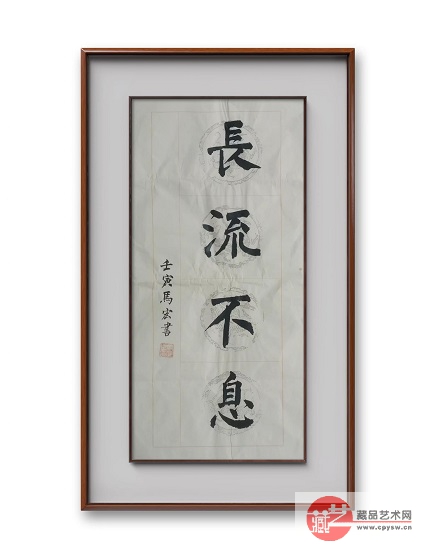 長流不息
壬寅馬宏書
藏艺
藏品艺术网
www.cpysw.cn